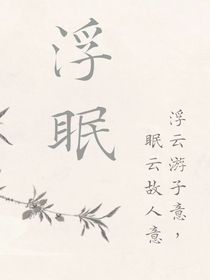 浮眠
浮云游子意，
眠云故人意